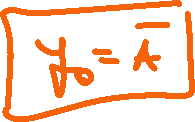 y₀ = A̅